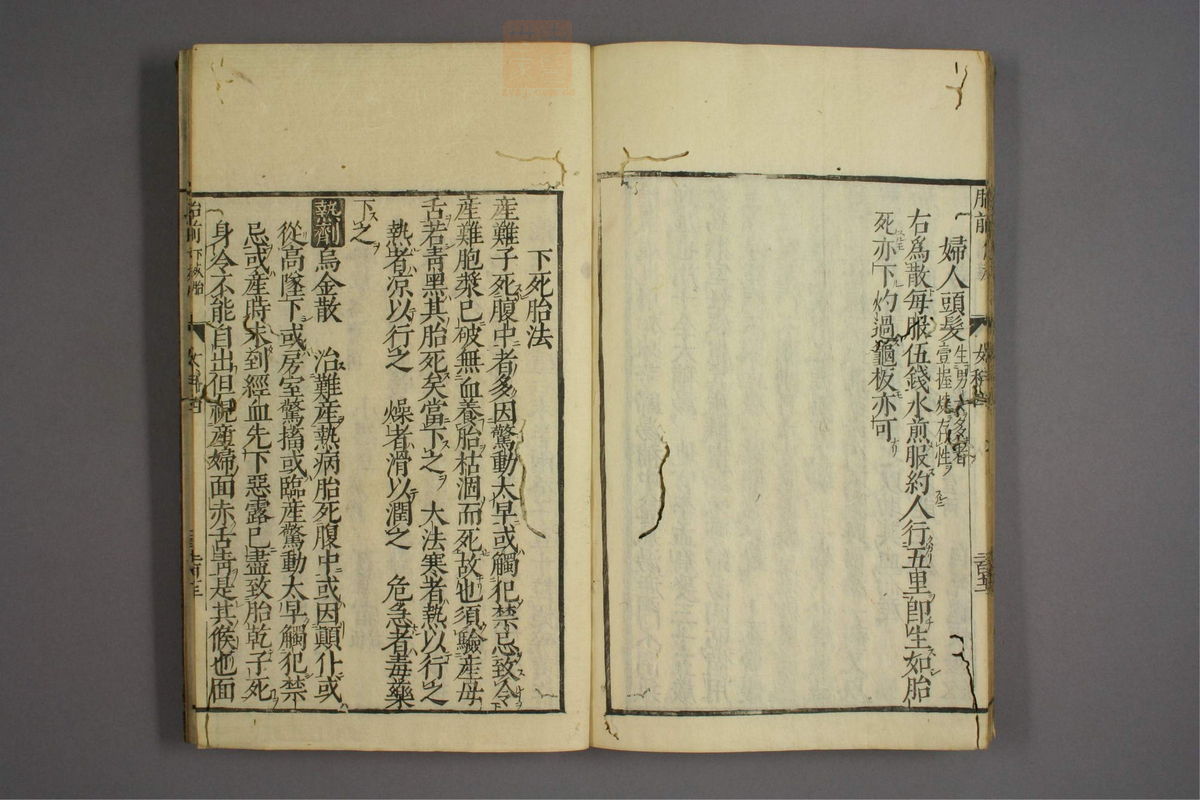 婦人頭髮生男女多者壹握燒存性
右爲散每服伍錢水煎服約人行五里即生如胎
死亦下灼過龜板亦可
下死胎法
産難子死腹中者多因驚動太早或觸犯禁忌致令
産難胞漿已破無血養胎枯涸而死故也須驗産母
舌若青黑其胎死矣當下之 大法寒者熱以行之
熱者凉以行之 燥者滑以潤之 危急者毒藥
下之
熱劑烏金散 治難産熱病胎死腹中或因顛仆或
從高墜下或房室驚搐或臨産驚動太早觸犯禁
忌或産時未到經血先下惡露已盡致胎乾子死
身冷不能自出但視産婦面赤舌青是其候也面